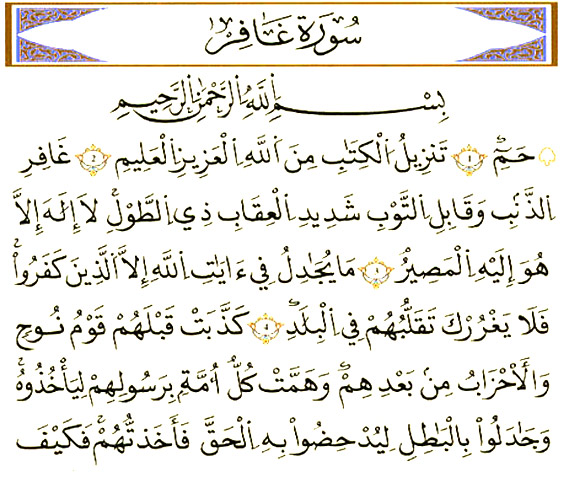 سُورَةُ غَافِرٍ
بِسْمِ اِ۬للَّهِ اِ۬لرَّحْمَٰنِ اِ۬لرَّحِيمِ
حَمِٓ تَنزِيلُ اُ۬لْكِتَٰبِ مِنَ اَ۬للَّهِ اِ۬لْعَزِيزِ اِ۬لْعَلِيمِ غَافِرِ
اِ۬لذَّنۢبِ وَقَابِلِ اِ۬لتَّوْبِ شَدِيدِ اِ۬لْعِقَابِ ذِي اِ۬لطَّوْلِ لَا إِلَٰهَ إِلَّا
هُوَ إِلَيْهِ اِ۬لْمَصِيرُ مَا يُجَٰدِلُ فِي ءَايَٰتِ اِ۬للَّهِ إِلَّا اَ۬لَّذِينَ كَفَرُواْ
فَلَا يَغْرُرْكَ تَقَلُّبُهُمْ فِي اِ۬لْبِلَٰدِ كَذَّبَتْ قَبْلَهُمْ قَوْمُ نُوحٍ
وَالْأَحْزَابُ مِنۢ بَعْدِهِمْ وَهَمَّتْ كُلُّ أُمَّةِۭ بِرَسُولِهِمْ لِيَأْخُذُوهُ
وَجَٰدَلُواْ بِالْبَٰطِلِ لِيُدْحِضُواْ بِهِ اِ۬لْحَقَّ فَأَخَذتُّهُمْ فَكَيْفَ